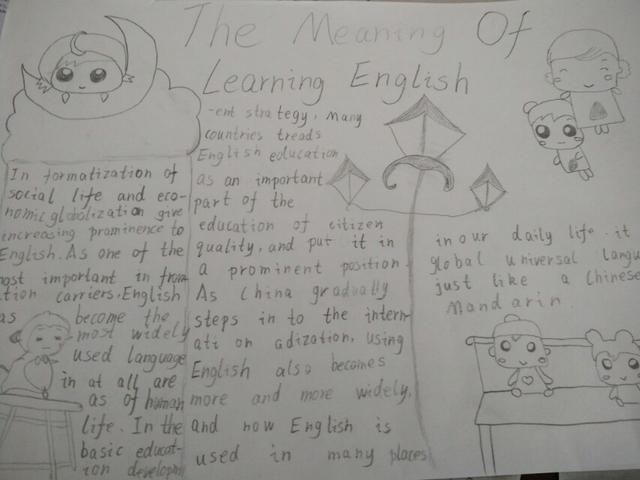 The Meaning Of
Learning English
In formatization of
social life and eco-
nomic globalization give
increasing prominence to
English. As one of the
most important in from
ation carriers. English
as become the
most widely
used language
in at all are
as of human
life. In the
basic educat-
ion developm
-ent strategy, many
countries treads
English education
as an important
part of the
education of citizen
quality, and put it in
a prominent position.
As China gradually
steps in to the intern
ati on adization, using
English also becomes
more and more widely,
and now English is
used in many places
in our daily life. it
global universal langu
just like a Chinese
Mandarin.